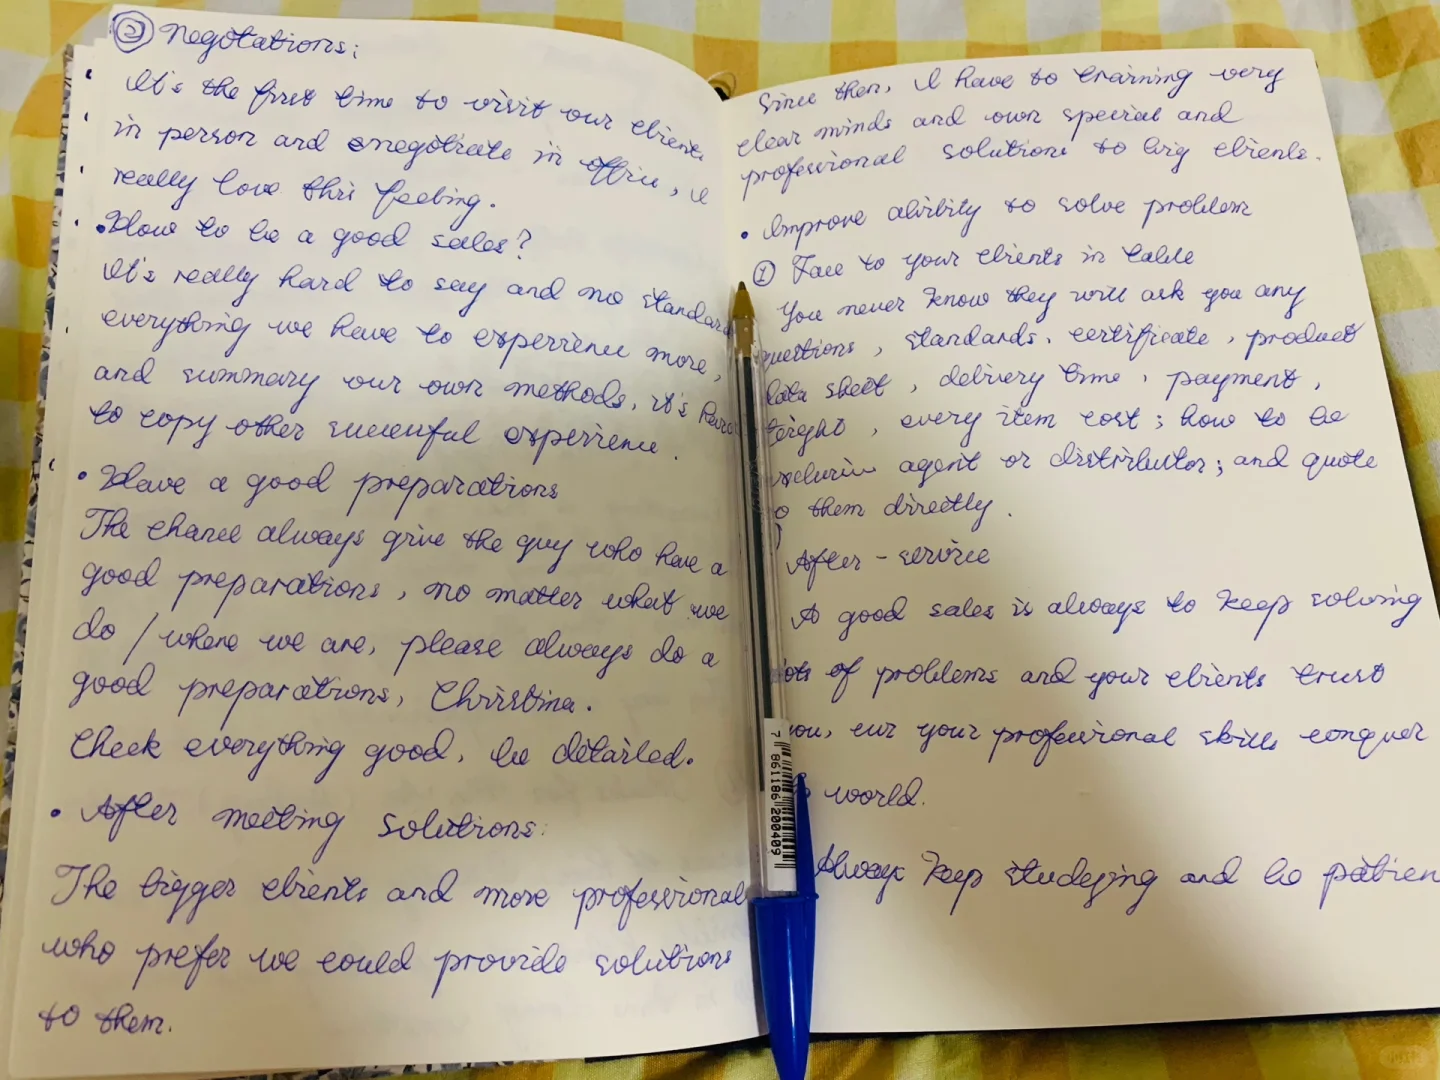 ② Negotations:
It's the first time to visit our clients
in person and negotiate in office, I
really love this feeling.
• How to be a good sales?
It's really hard to say and no standard
everything we have to experience more,
and summary our own methods, it's hard
to copy other successful experience.
• Have a good preparations
The chance always give the guy who have a
good preparations, no matter what we
do / where we are, please always do a
good preparations, Christina.
Check everything good, be detailed.
• After meeting solutions:
The bigger clients and more professional
who prefer we could provide solutions
to them.
Since then, I have to training very
clear minds and own special and
professional solutions to big clients.
• Improve ability to solve problem
① Face to your clients in table
You never know they will ask you any
questions, standards, certificate, product
data sheet, delivery time, payment,
, every item cost; how to be
exclusive agent or distributor; and quote
to them directly.
After-service
A good sales is always to keep solving
lots of problems and your clients trust
you, your professional skills conquer
world.
Always keep studying and be patien
7 861186 200409